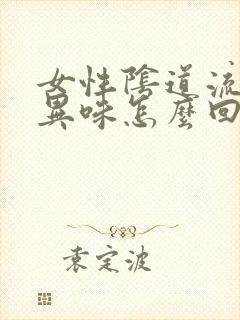 女性陰道流
異味怎麼回
袁定波